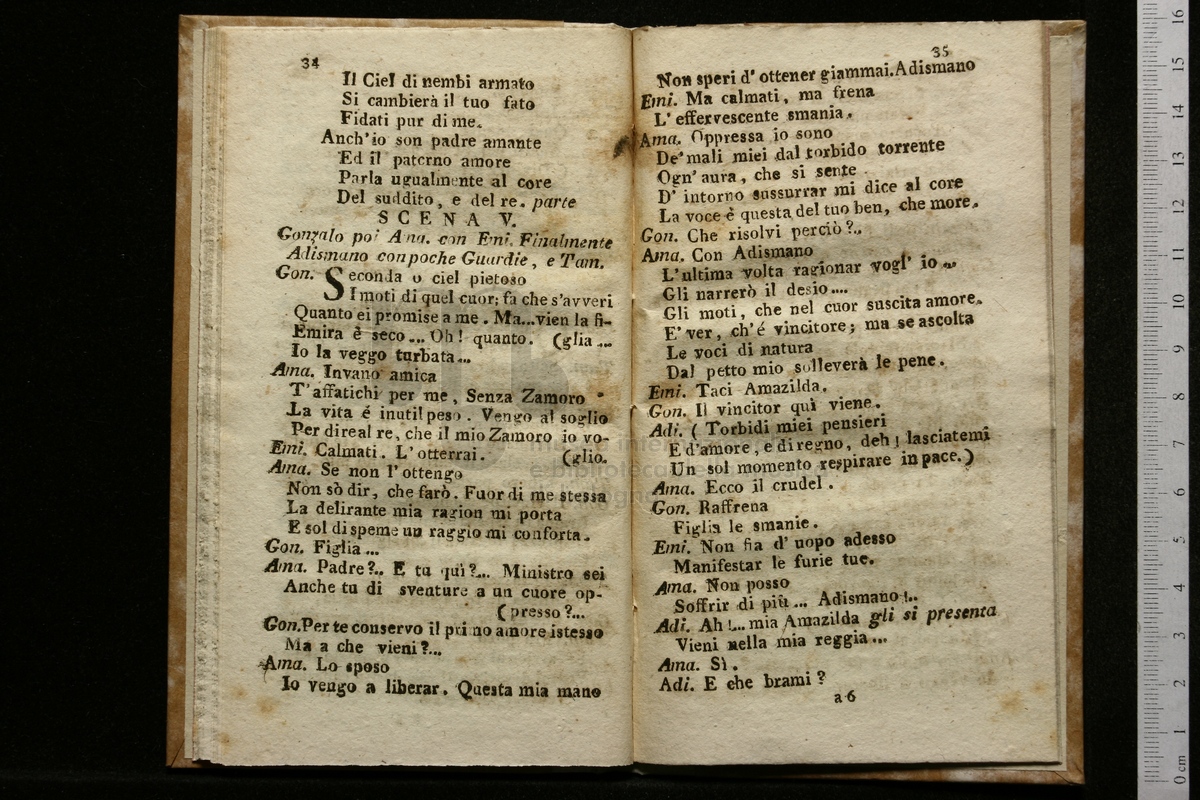 34
Il Ciel di nembi armato
Si cambierà il tuo fato
Fidati pur di me.
Anch'io son padre amante
Ed il paterno amore
Parla ugualmente al core
Del suddito, e del re. parte
SCENA V.
Gonzalo poi Ama. con Emi. Finalmente
Adismano con poche Guardie, e Tam.
Gon. Seconda o ciel pietoso
I moti di quel cuor; fa che s'avveri
Quanto ei promise a me. Ma...vien la fi-
Emira è seco... Oh! quanto. (glia ...
Io la veggo turbata...
Ama. Invano amica
T'affatichi per me, Senza Zamoro
La vita é inutil peso. Vengo al soglio
Per dir eal re, che il mio Zamoro io vo-
Emi. Calmati. L'otterrai. (glio.
Ama. Se non l'ottengo
Non sò dir, che farò. Fuor di me stessa
La delirante mia ragion mi porta
E sol di speme un raggio mi conforta.
Gon. Figlia...
Ama. Padre?.. E tu quì?... Ministro sei
Anche tu di sventure a un cuore op-
(presso?...
Gon. Per te conservo il primo amore istesso
Ma a che vieni?...
Ama. Lo sposo
Io vengo a liberar. Questa mia mano
35
Non speri d'ottener giammai. Adismano
Emi. Ma calmati, ma frena
L'effervescente smania.
Ama. Oppressa io sono
De'mali miei dal torbido torrente
Ogn'aura, che si sente
D'intorno sussurrar mi dice al core
La voce è questa del tuo ben, che more.
Gon. Che risolvi perciò?..
Ama. Con Adismano
L'ultima volta ragionar vogl'io...
Gli narrerò il desio....
Gli moti, che nel cuor suscita amore.
E' ver, ch'é vincitore; ma se ascolta
Le voci di natura
Dal petto mio solleverà le pene.
Emi. Taci Amazilda.
Gon. Il vincitor quì viene.
Adi. ( Torbidi miei pensieri
E d'amore, e di regno, deh! lasciatemi
Un sol momento respirare in pace.)
Ama. Ecco il crudel.
Gon. Raffrena
Figlia le smanie.
Emi. Non fia d'uopo adesso
Manifestar le furie tue.
Ama. Non posso
Soffrir di più... Adismano!..
Adi. Ah!... mia Amazilda gli si presenta
Vieni nella mia reggia...
Ama. Sì.
Adi. E che brami?
a 6